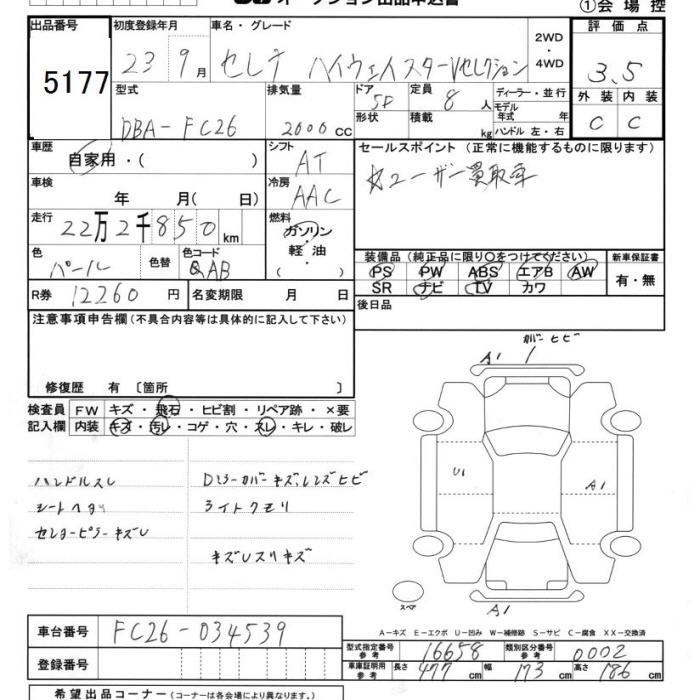 オークション出品申込書
①会場控
出品番号
5177
初度登録年月
23 9月
車名・グレード
セレナ ハイウェイスターVセレクション
2WD・4WD
評価点
3.5
外装 内装
C C
型式
DBA-FC26
排気量
2000 cc
ドア
5P
形状
定員
8人
積載
kg
ディーラー・並行
モデル年式 年
ハンドル 左・右
車歴
自家用・( )
シフト
AT
セールスポイント (正常に機能するものに限ります)
ユーザー買取車
車検
年 月( 日)
冷房
AAC
走行
22万2千850km
燃料
ガソリン
軽油
( )
色
パール
色替
色コード
QAB
装備品 (純正品に限り○をつけてください)
PS PW ABS エアB AW
SR ナビ TV カワ
新車保証書
有・無
R券 12260円
名変期限 月 日
後日品
注意事項申告欄(不具合内容等は具体的に記入して下さい)
修復歴 有 〔箇所 〕
検査員記入欄
FW キズ・飛石・ヒビ割・リペア跡・×要
内装 キズ・汚レ・コゲ・穴・スレ・キレ・破レ
ハンドルスレ
シートヘタリ
センターピラーキズレ
Dミラーカバーキズ、レンズヒビ
ライトクモリ
キズレスリキズ
カバーヒビ
A1
U1
A1
スペア
A1
A-キズ E-エクボ U-凹み W-補修跡 S-サビ C-腐食 XX-交換済
車台番号
FC26-034539
登録番号
型式指定番号 参考
16658
類別区分番号 参考
0002
車庫証明用 参考
長さ 477cm
幅 173cm
高さ 186cm
希望出品コーナー(コーナーは各会場により異なります。)